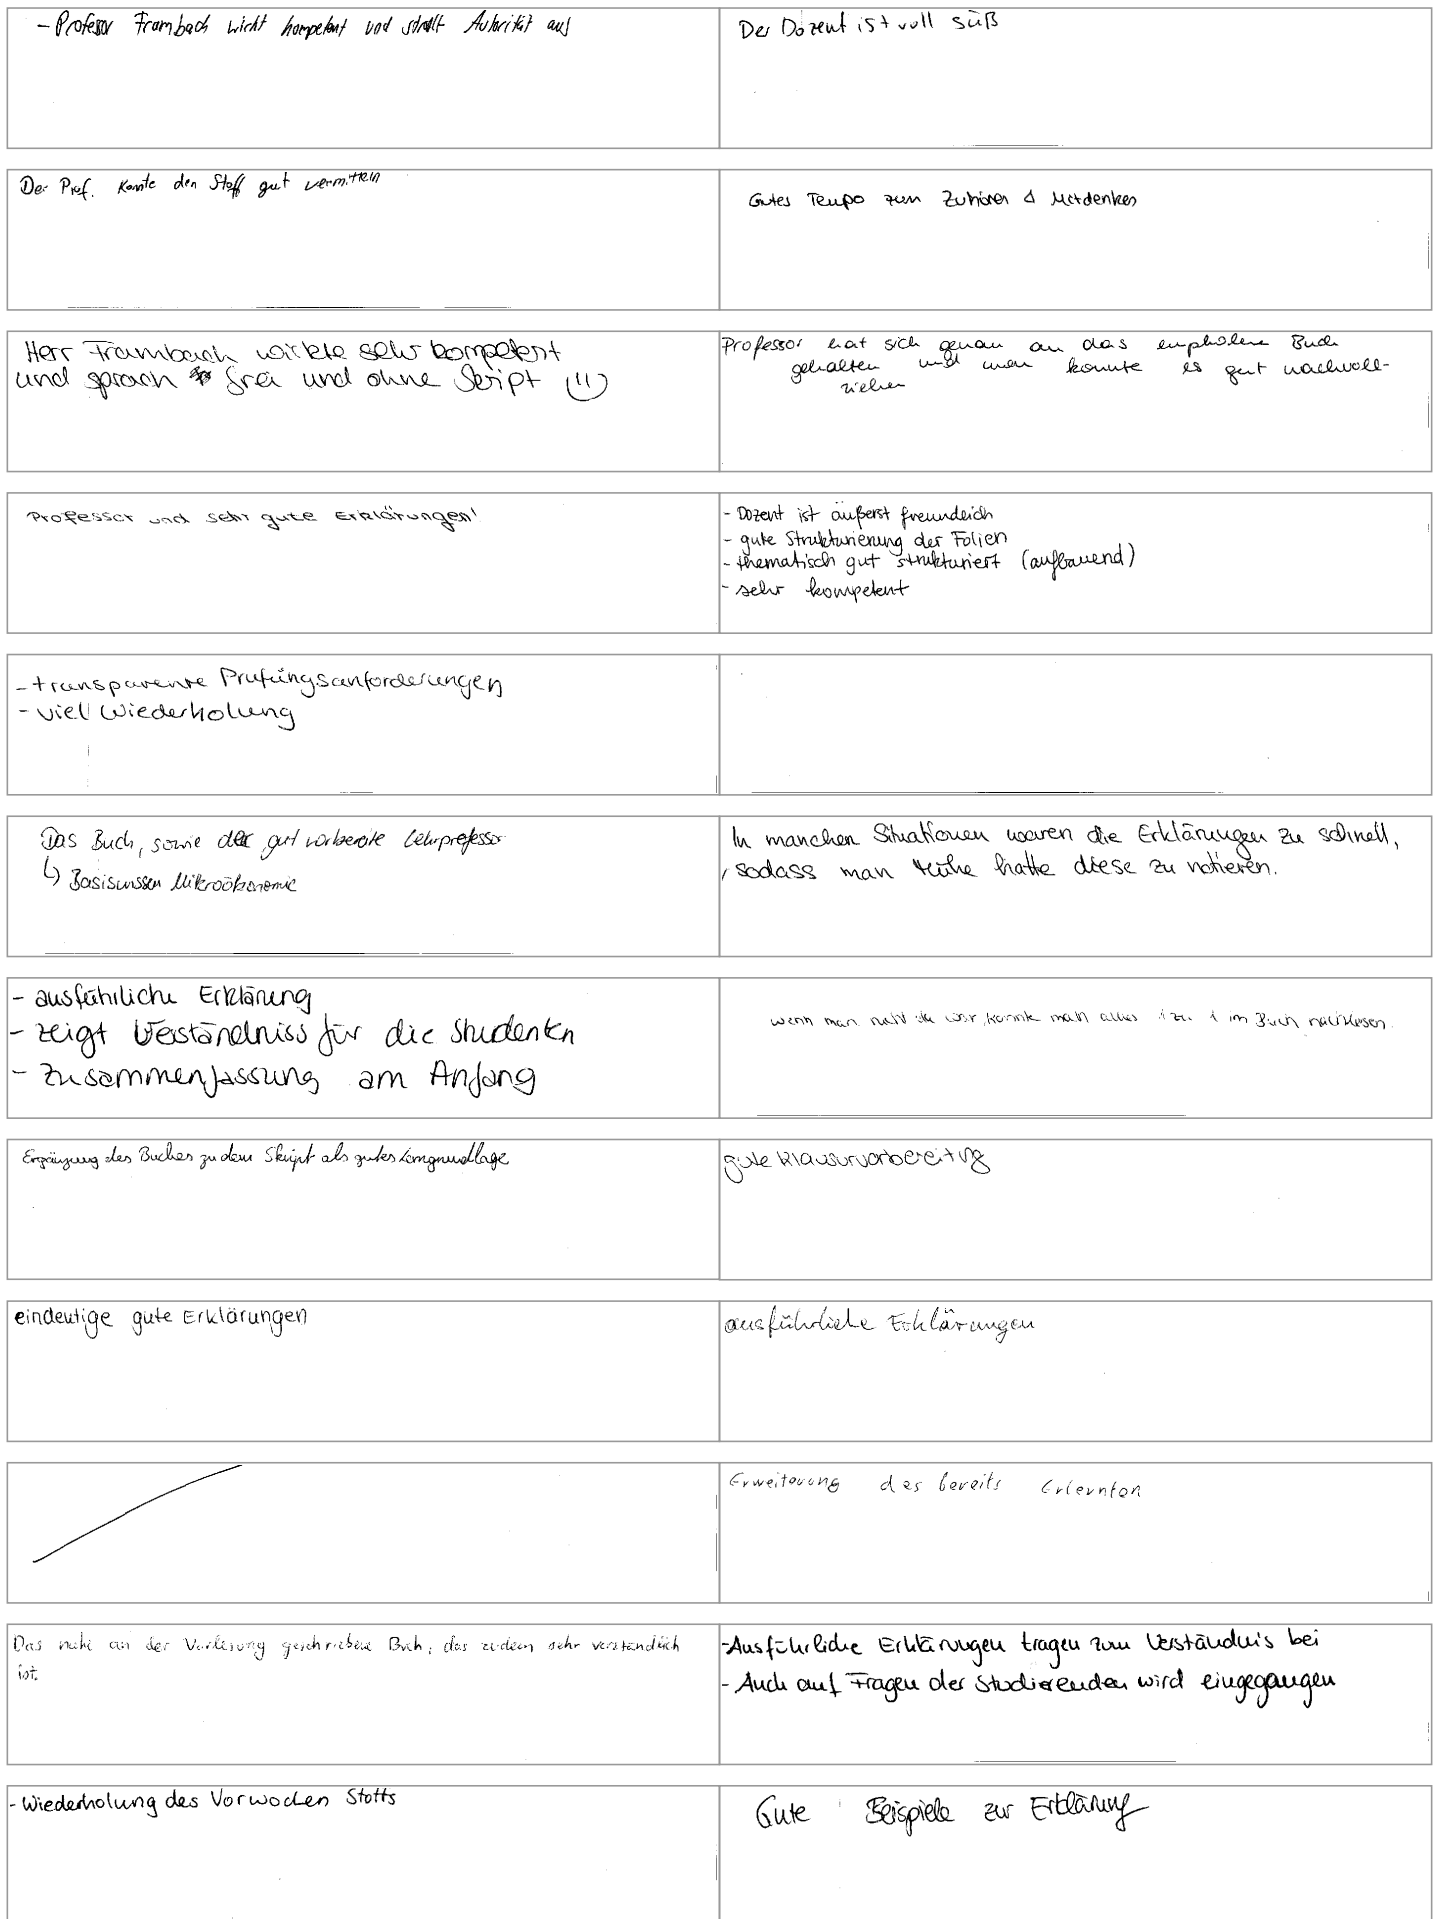 - Professor Frambach wirkt kompetent und strahlt Autorität aus
Der Dozent ist voll süß
Der Prof. konnte den Stoff gut vermitteln
Gutes Tempo zum Zuhören & Mitdenken
Herr Frambach wirkte sehr kompetent
und sprach frei und ohne Skript (!!)
Professor hat sich genau an das empholene Buch
gehalten und man konnte es gut nachvoll-
ziehen
Professor und sehr gute Erklärungen!
- Dozent ist äußerst freundlich
- gute Strukturierung der Folien
- thematisch gut strukturiert (aufbauend)
- sehr kompetent
- transparente Prüfungsanforderungen
- viel Wiederholung
Das Buch, sowie der gut vorbereite Lehrprofessor
↳ Basiswissen Mikroökonomie
In manchen Situationen waren die Erklärungen zu schnell,
sodass man Mühe hatte diese zu notieren.
- ausführliche Erklärung
- zeigt Verständniss für die Studenten
- Zusammenfassung am Anfang
wenn man nicht da war, konnte man alles 1 zu 1 im Buch nachlesen.
Ergänzung des Buches zu dem Skript als gutes Lerngrundlage
gute Klausurvorbereitung
eindeutige gute Erklärungen
ausführliche Erklärungen
Erweiterung des bereits Erlernten
Das nahe an der Vorlesung geschriebene Buch, das zudem sehr verständlich
ist.
- Ausführliche Erklärungen tragen zum Verständnis bei
- Auch auf Fragen der Studierenden wird eingegangen
- Wiederholung des Vorwochen Stoffs
Gute Beispiele zur Erklärung